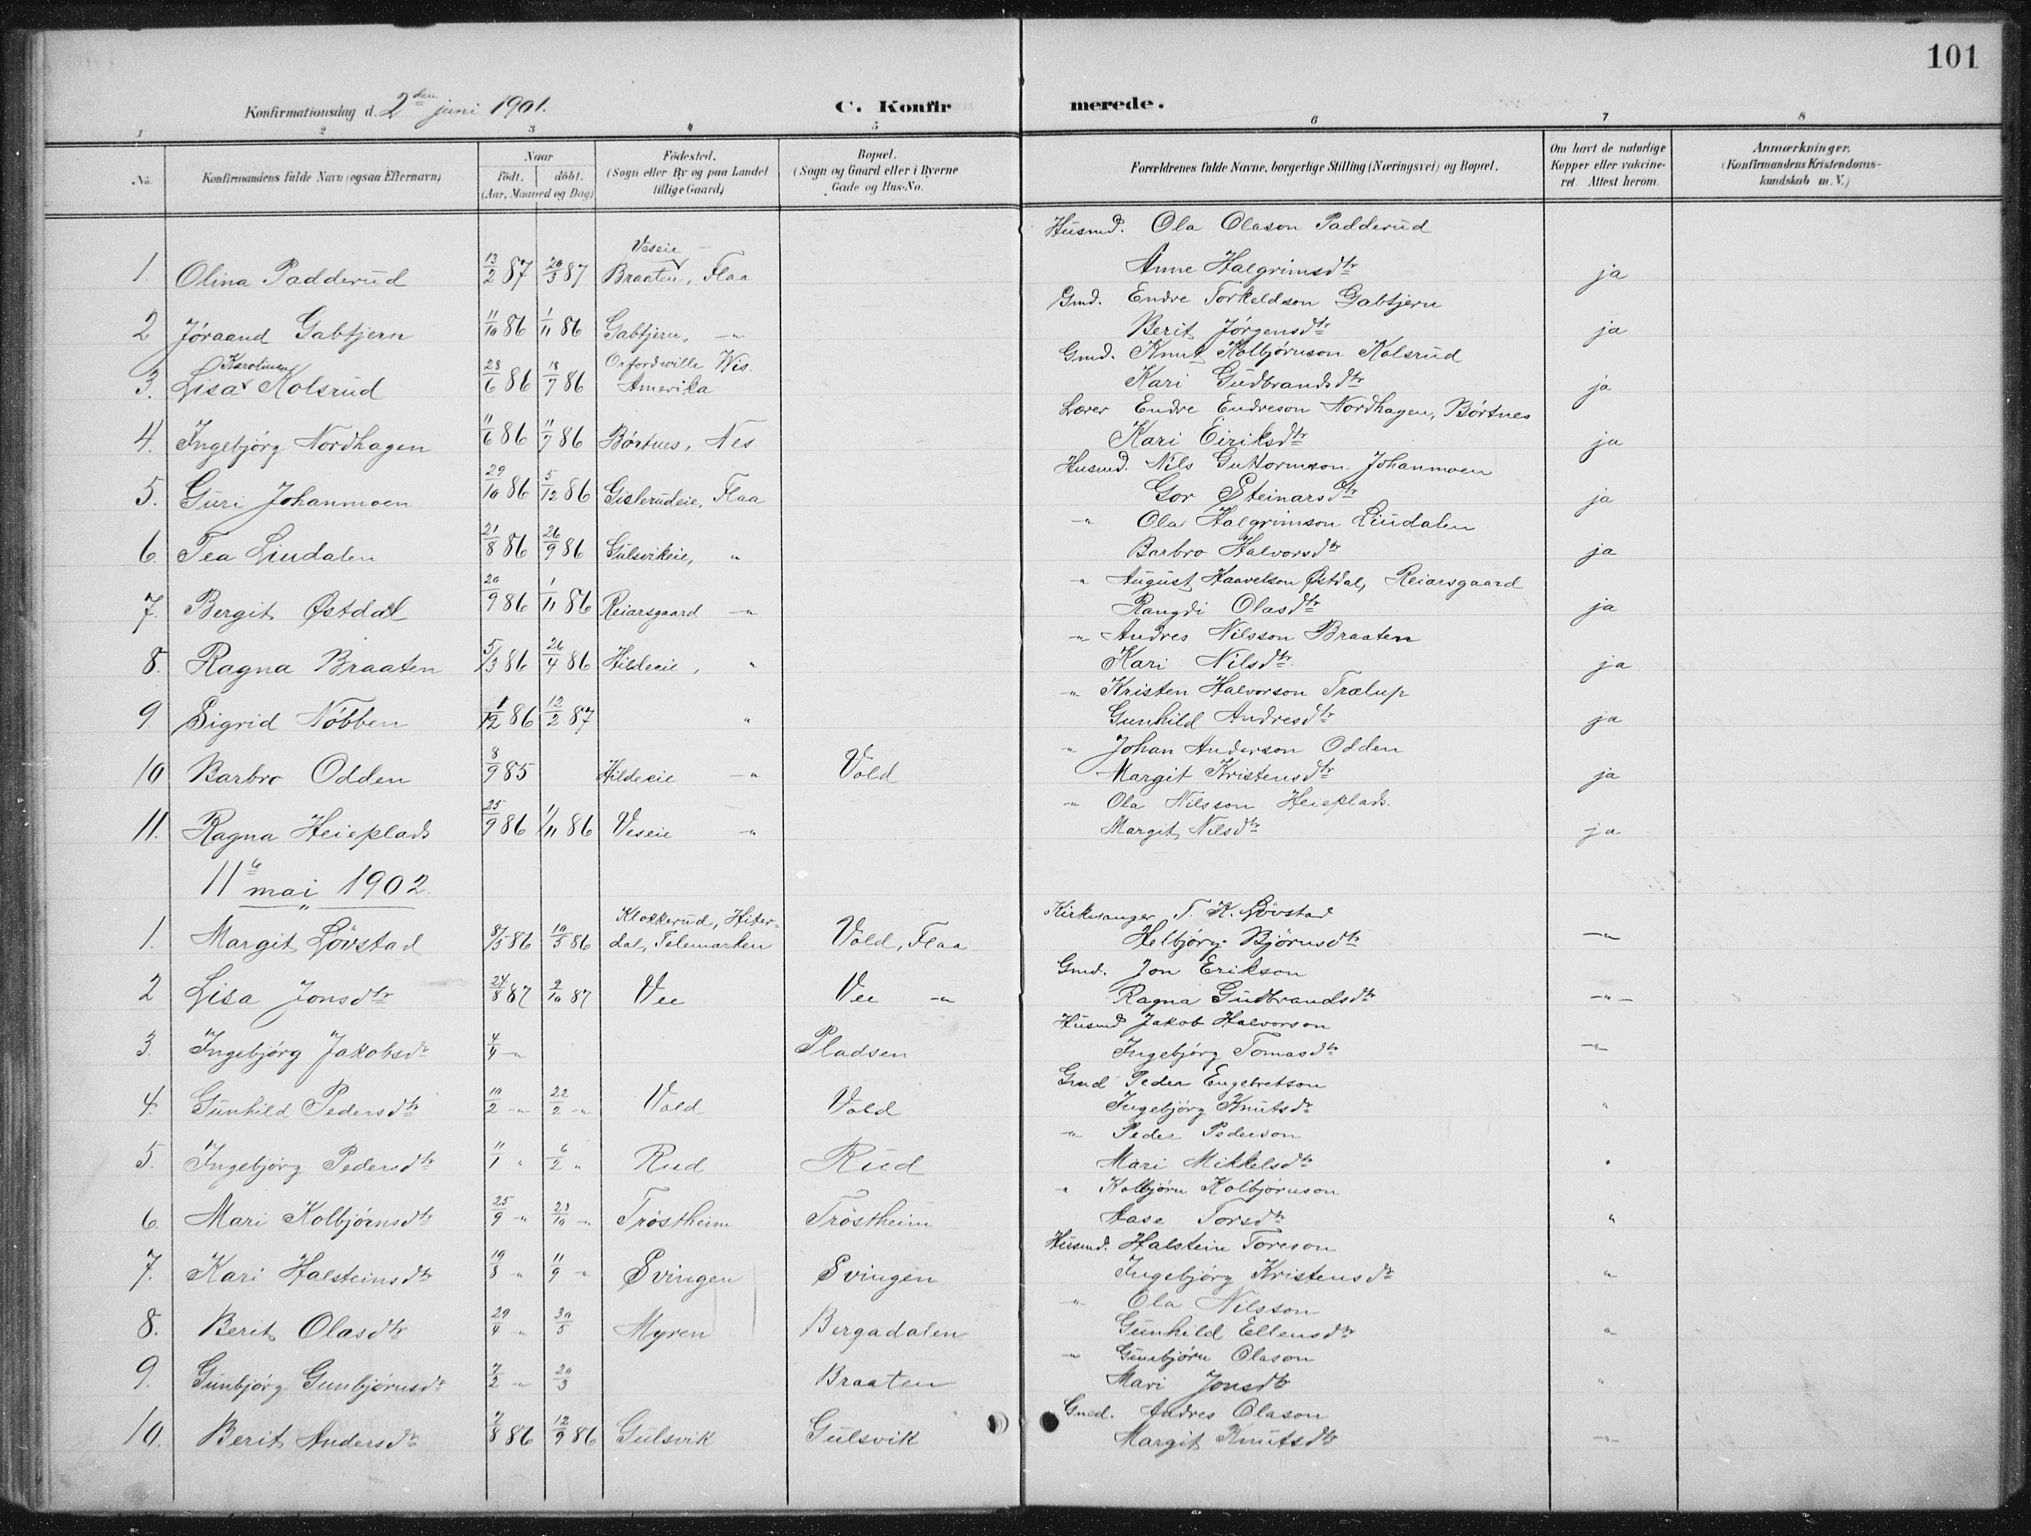 101
Konfirmationsdag d. 2den juni 1901. C. Konfir merede.
1 2 3 4 5 6 7 8
No. Konfirmandens fulde Navn (ogsaa Efternavn) Naar födt. döbt. (Aar, Maaned og Dag) Födested. (Sogn eller By og paa Landet tillige Gaard) Bopæl. (Sogn og Gaard eller i Byerne Gade og Hus-No. Forældrenes fulde Navne, borgerlige Stilling (Næringsvei) og Bopæl. Om havt de naturlige Kopper eller vakcineret. Attest herom. Anmærkninger. (Konfirmandens Kristendomskundskab m. V.)
Husmd. Ola Olason Padderud
Veseie
1. Olina Padderud 13/2 87 20/3 87 Braaten, Flaa Anne Halgrimsdtr ja
Gmd. Endre Torkeldson Gabtjern
2 Jøraand Gabtjern 11/10 86 1/11 86 Gabtjern, -"- Berit Jørgensdtr ja
Gmd. Knut Kolbjørnson Kolsrud
Karoline Orfordwille Wis.
3. Lisa Kolsrud 28/6 86 18/7 86 Amerika Kari Gudbrandsdtr ja
Lærer Endre Endreson Nordhagen, Børtnes
4. Ingebjørg Nordhagen 11/6 86 11/7 86 Børtnes, Nes Kari Eiriksdtr ja
Husmd. Nils Guttormson Johanmoen
5. Guri Johanmoen 29/10 86 5/12 86 Gislerudeie, Flaa Gor Steinarsdtr ja
-"- Ola Halgrimson Lindalen
6. Tea Lindalen 21/8 86 26/9 86 Gulsvikeie, " Barbro Halvorsdtr ja
" August Haavelson Østdal, Reiarsgaard
7. Bergit Østdal 20/9 86 1/11 86 Reiarsgaard -"- Rangdi Olasdtr ja
-"- Andres Nilsson Braaten
8. Ragna Braaten 5/3 86 26/4 86 Hildeeie, " Kari Nilsdtr ja
-"- Kristen Halvorson Trælup
9. Sigrid Nøbben 1/12 86 12/2 87 " Gunhild Andresdtr ja
-"- Johan Anderson Odden
10 Barbro Odden 8/9 85 Hildeeie -"- Vold Margit Kristensdtr ja
-"- Ola Nilsson Heieplads.
11. Ragna Heieplads 25/9 86 1/11 86 Veseie -"- Margit Nilsdtr ja
11te mai 1902.
Klokkerud, Hiter- Kirkesanger T. K. Løvstad
1. Margit Løvstad 8/3 86 10/5 86 dal, Telemarken Vold, Flaa Helbjørg Bjørnsdtr -"-
Gmd. Jon Erikson
2 Lisa Jonsdtr 24/8 87 2/10 87 Vee Vee -"- Ragna Gudbrandsdtr -"-
Husmd Jakob Halvorson
3. Ingebjørg Jakobsdtr 4/4 -"- Pladsen Ingebjørg Tomasdtr -"-
Gmd Peder Engebretson
4. Gunhild Pedersdtr 10/2 -"- 22/2 -"- Vold Vold Ingebjørg Knutsdtr "
-"- Peder Pederson
5. Ingebjørg Pedersdtr 11/1 " 6/2 " Rud Rud Mari Mikkelsdtr "
" Kolbjørn Kolbjørnson
6. Mari Kolbjørnsdtr 25/9 -"- 23/10 -"- Trøstheim Trøstheim Aase Torsdtr "
Husmd. Halstein Toreson
7. Kari Halsteinsdtr 19/8 " 11/9 " Svingen Svingen Ingebjørg Kristensdtr "
-"- Ola Nilsson
8. Berit Olasdtr 29/4 " 30/5 Myren Bergadalen Gunhild Ellensdtr "
-"- Gunbjørn Olason
9. Gunbjørg Gunbjørnsdtr 7/2 -"- 20/3 Braaten Mari Jonsdtr "
Gmd. Andres Olason
10. Berit Andersdtr 7/8 86 12/9 86 Gulsvik Gulsvik Margit Knutsdtr -"-